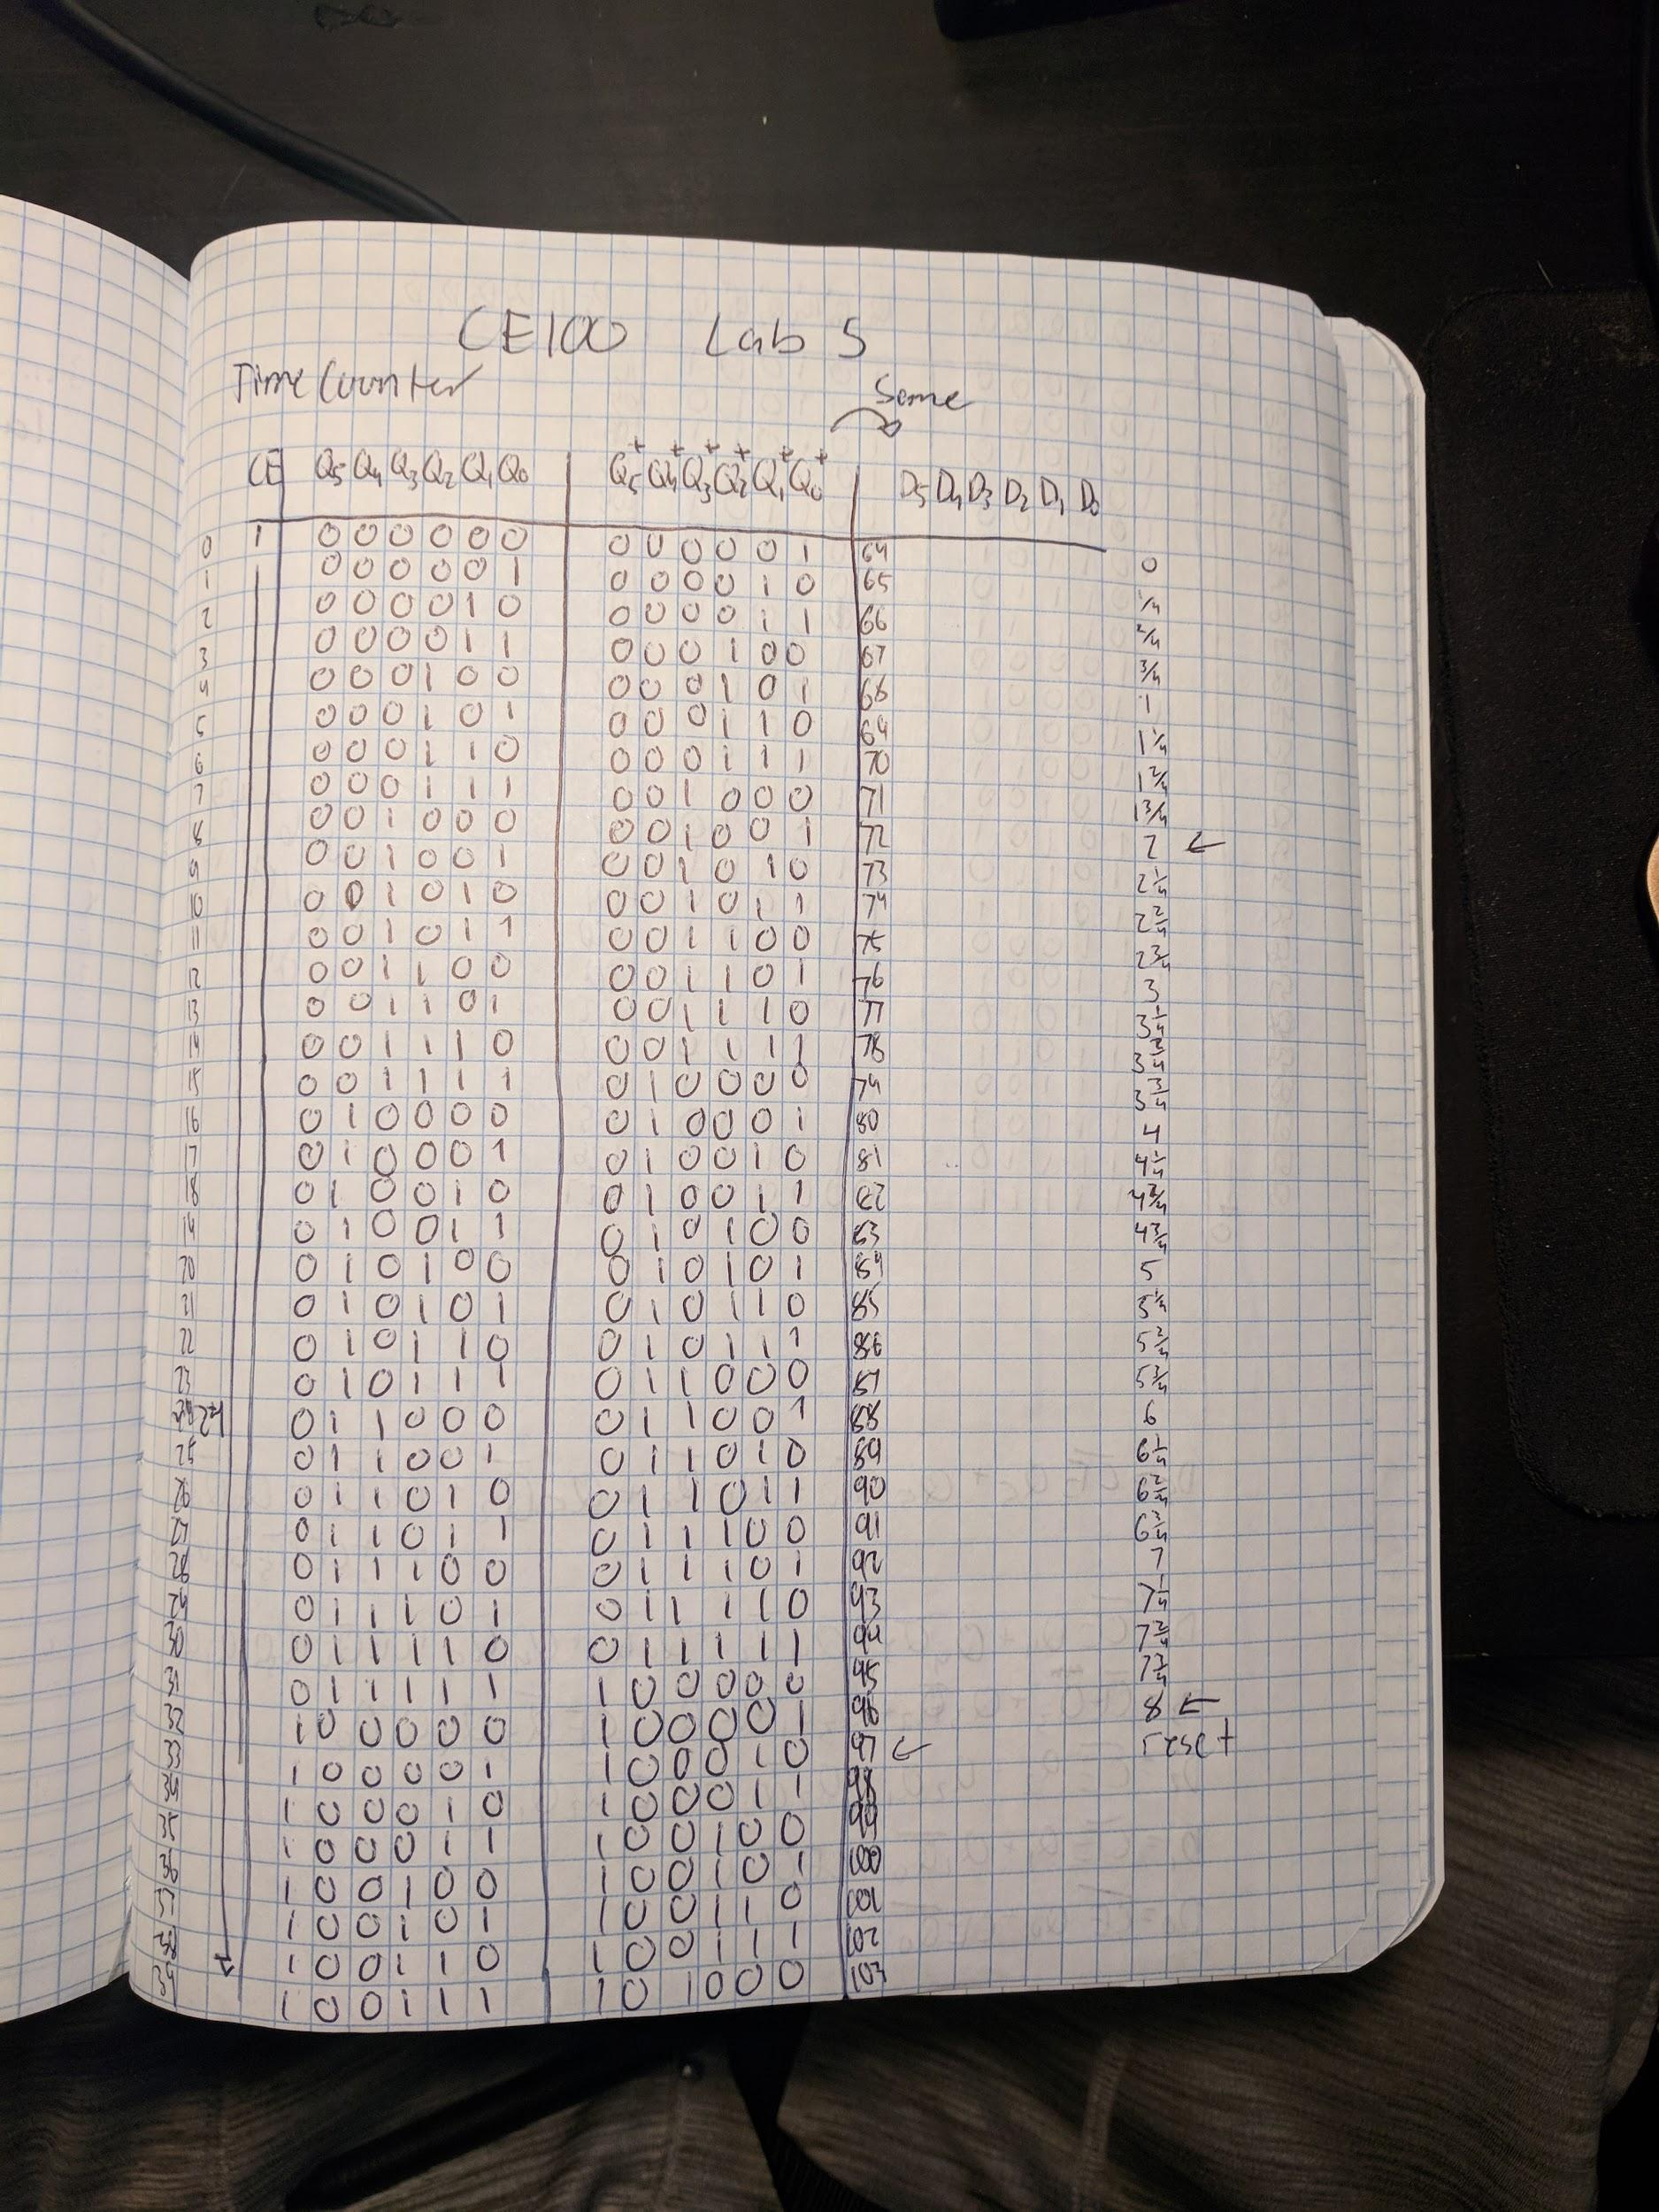 CE100 Lab 5
Time Counter
Same
CE Q5 Q4 Q3 Q2 Q1 Q0 Q5+ Q4+ Q3+ Q2+ Q1+ Q0+ D5 D4 D3 D2 D1 D0
0 1 0 0 0 0 0 0 0 0 0 0 0 1 64 0
1 0 0 0 0 0 1 0 0 0 0 1 0 65 1/4
2 0 0 0 0 1 0 0 0 0 0 1 1 66 2/4
3 0 0 0 0 1 1 0 0 0 1 0 0 67 3/4
4 0 0 0 1 0 0 0 0 0 1 0 1 68 1
5 0 0 0 1 0 1 0 0 0 1 1 0 69 1 1/4
6 0 0 0 1 1 0 0 0 0 1 1 1 70 1 2/4
7 0 0 0 1 1 1 0 0 1 0 0 0 71 1 3/4
8 0 0 1 0 0 0 0 0 1 0 0 1 72 2 ←
9 0 0 1 0 0 1 0 0 1 0 1 0 73 2 1/4
10 0 0 1 0 1 0 0 0 1 0 1 1 74 2 2/4
11 0 0 1 0 1 1 0 0 1 1 0 0 75 2 3/4
12 0 0 1 1 0 0 0 0 1 1 0 1 76 3
13 0 0 1 1 0 1 0 0 1 1 1 0 77 3 1/4
14 0 0 1 1 1 0 0 0 1 1 1 1 78 3 2/4
15 0 0 1 1 1 1 0 1 0 0 0 0 79 3 3/4
16 0 1 0 0 0 0 0 1 0 0 0 1 80 4
17 0 1 0 0 0 1 0 1 0 0 1 0 81 4 1/4
18 0 1 0 0 1 0 0 1 0 0 1 1 82 4 2/4
19 0 1 0 0 1 1 0 1 0 1 0 0 83 4 3/4
20 0 1 0 1 0 0 0 1 0 1 0 1 84 5
21 0 1 0 1 0 1 0 1 0 1 1 0 85 5 1/4
22 0 1 0 1 1 0 0 1 0 1 1 1 86 5 2/4
23 0 1 0 1 1 1 0 1 1 0 0 0 87 5 3/4
24 0 1 1 0 0 0 0 1 1 0 0 1 88 6
25 0 1 1 0 0 1 0 1 1 0 1 0 89 6 1/4
26 0 1 1 0 1 0 0 1 1 0 1 1 90 6 2/4
27 0 1 1 0 1 1 0 1 1 1 0 0 91 6 3/4
28 0 1 1 1 0 0 0 1 1 1 0 1 92 7
29 0 1 1 1 0 1 0 1 1 1 1 0 93 7 1/4
30 0 1 1 1 1 0 0 1 1 1 1 1 94 7 2/4
31 0 1 1 1 1 1 1 0 0 0 0 0 95 7 3/4
32 1 0 0 0 0 0 1 0 0 0 0 1 96 8 ←
33 1 0 0 0 0 1 1 0 0 0 1 0 97 ← reset
34 1 0 0 0 1 0 1 0 0 0 1 1 98
35 1 0 0 0 1 1 1 0 0 1 0 0 99
36 1 0 0 1 0 0 1 0 0 1 0 1 100
37 1 0 0 1 0 1 1 0 0 1 1 0 101
38 1 0 0 1 1 0 1 0 0 1 1 1 102
39 1 0 0 1 1 1 1 0 1 0 0 0 103